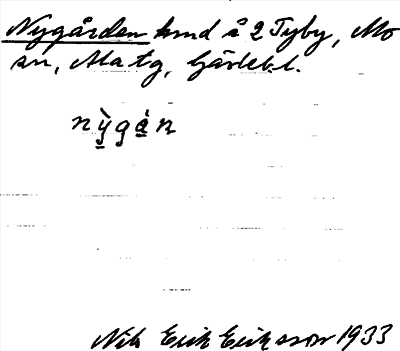 Nygården hmd å 2 Tyby, Mo
sn, Ala tg, Gävleb. l.
nỳ̱gá̱n
Nils Erik Eriksson 1933